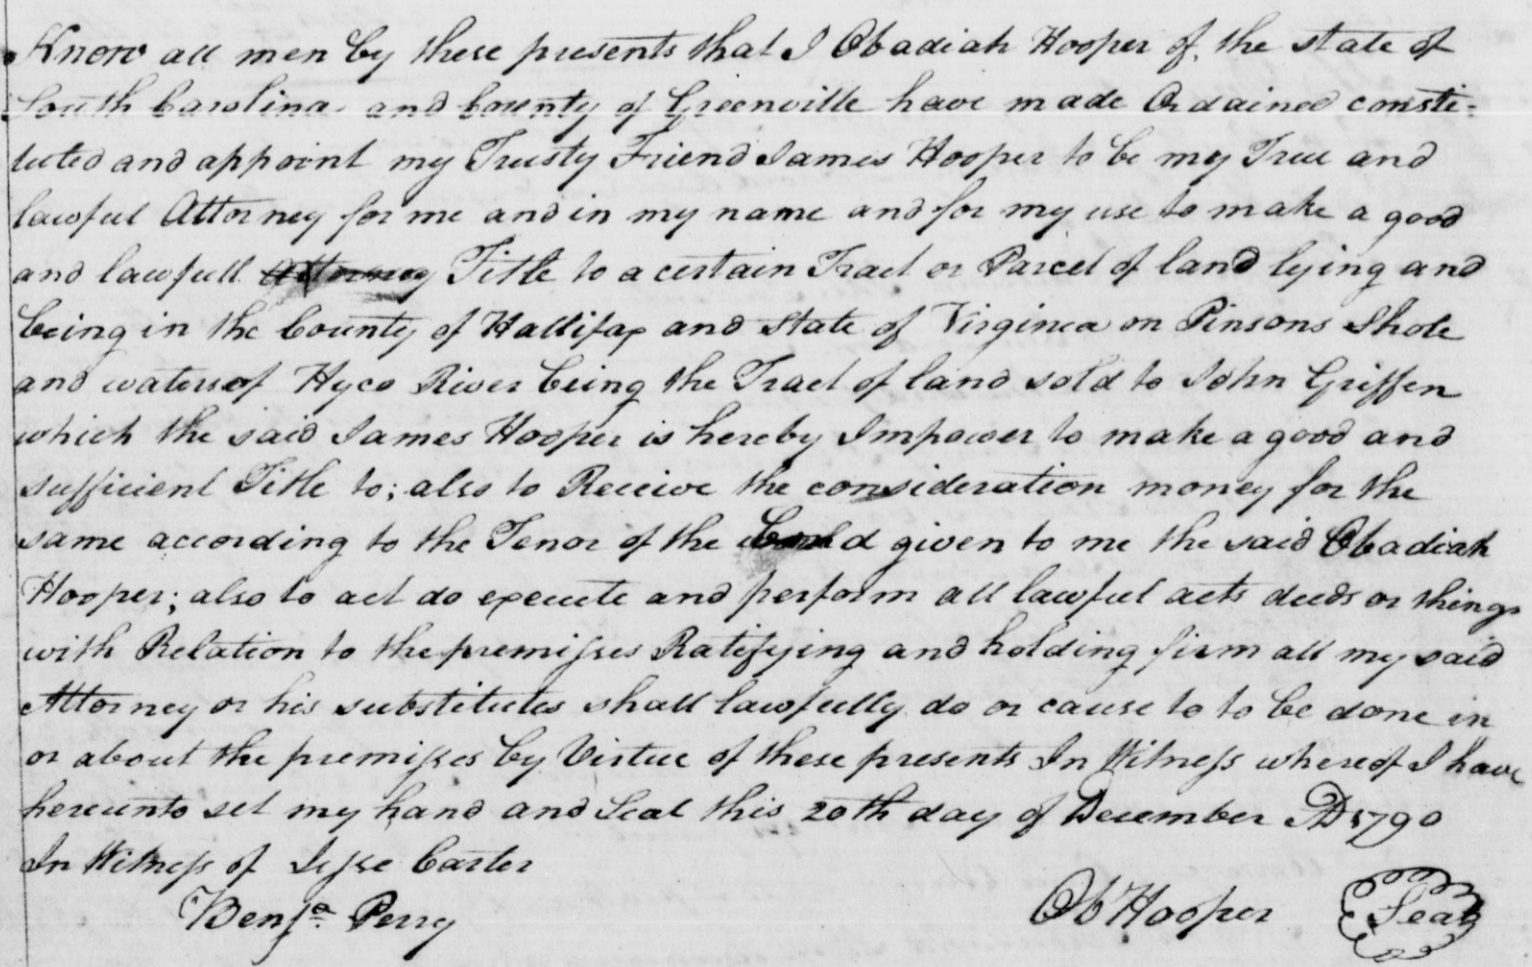 Know all men by these presents that I Obadiah Hooper of the state of
South Carolina and County of Greenville have made Ordained consti-
tuted and appoint my Trusty Friend James Hooper to be my True and
lawful Attorney for me and in my name and for my use to make a good
and lawfull Attorney Title to a certain Tract or Parcel of land lying and
being in the County of Hallifax and State of Virginia on Pinsons Shole
and waters of Hyco River being the Tract of land sold to John Griffen
which the said James Hooper is hereby Impower to make a good and
sufficient Title to; also to Receive the consideration money for the
same according to the Tenor of the given to me the said Obadiah
Hooper; also to act do execute and perform all lawful acts deeds or things
with Relation to the premisses Ratifying and holding firm all my said
Attorney or his substitutes shall lawfully do or cause to to be done in
or about the premisses by Virtue of these presents In Witness whereof I have
hereunto set my hand and Seal this 20th day of December AD 1790
In Witness of Jesse Carter
Benja. Perry
Ob Hooper Seal